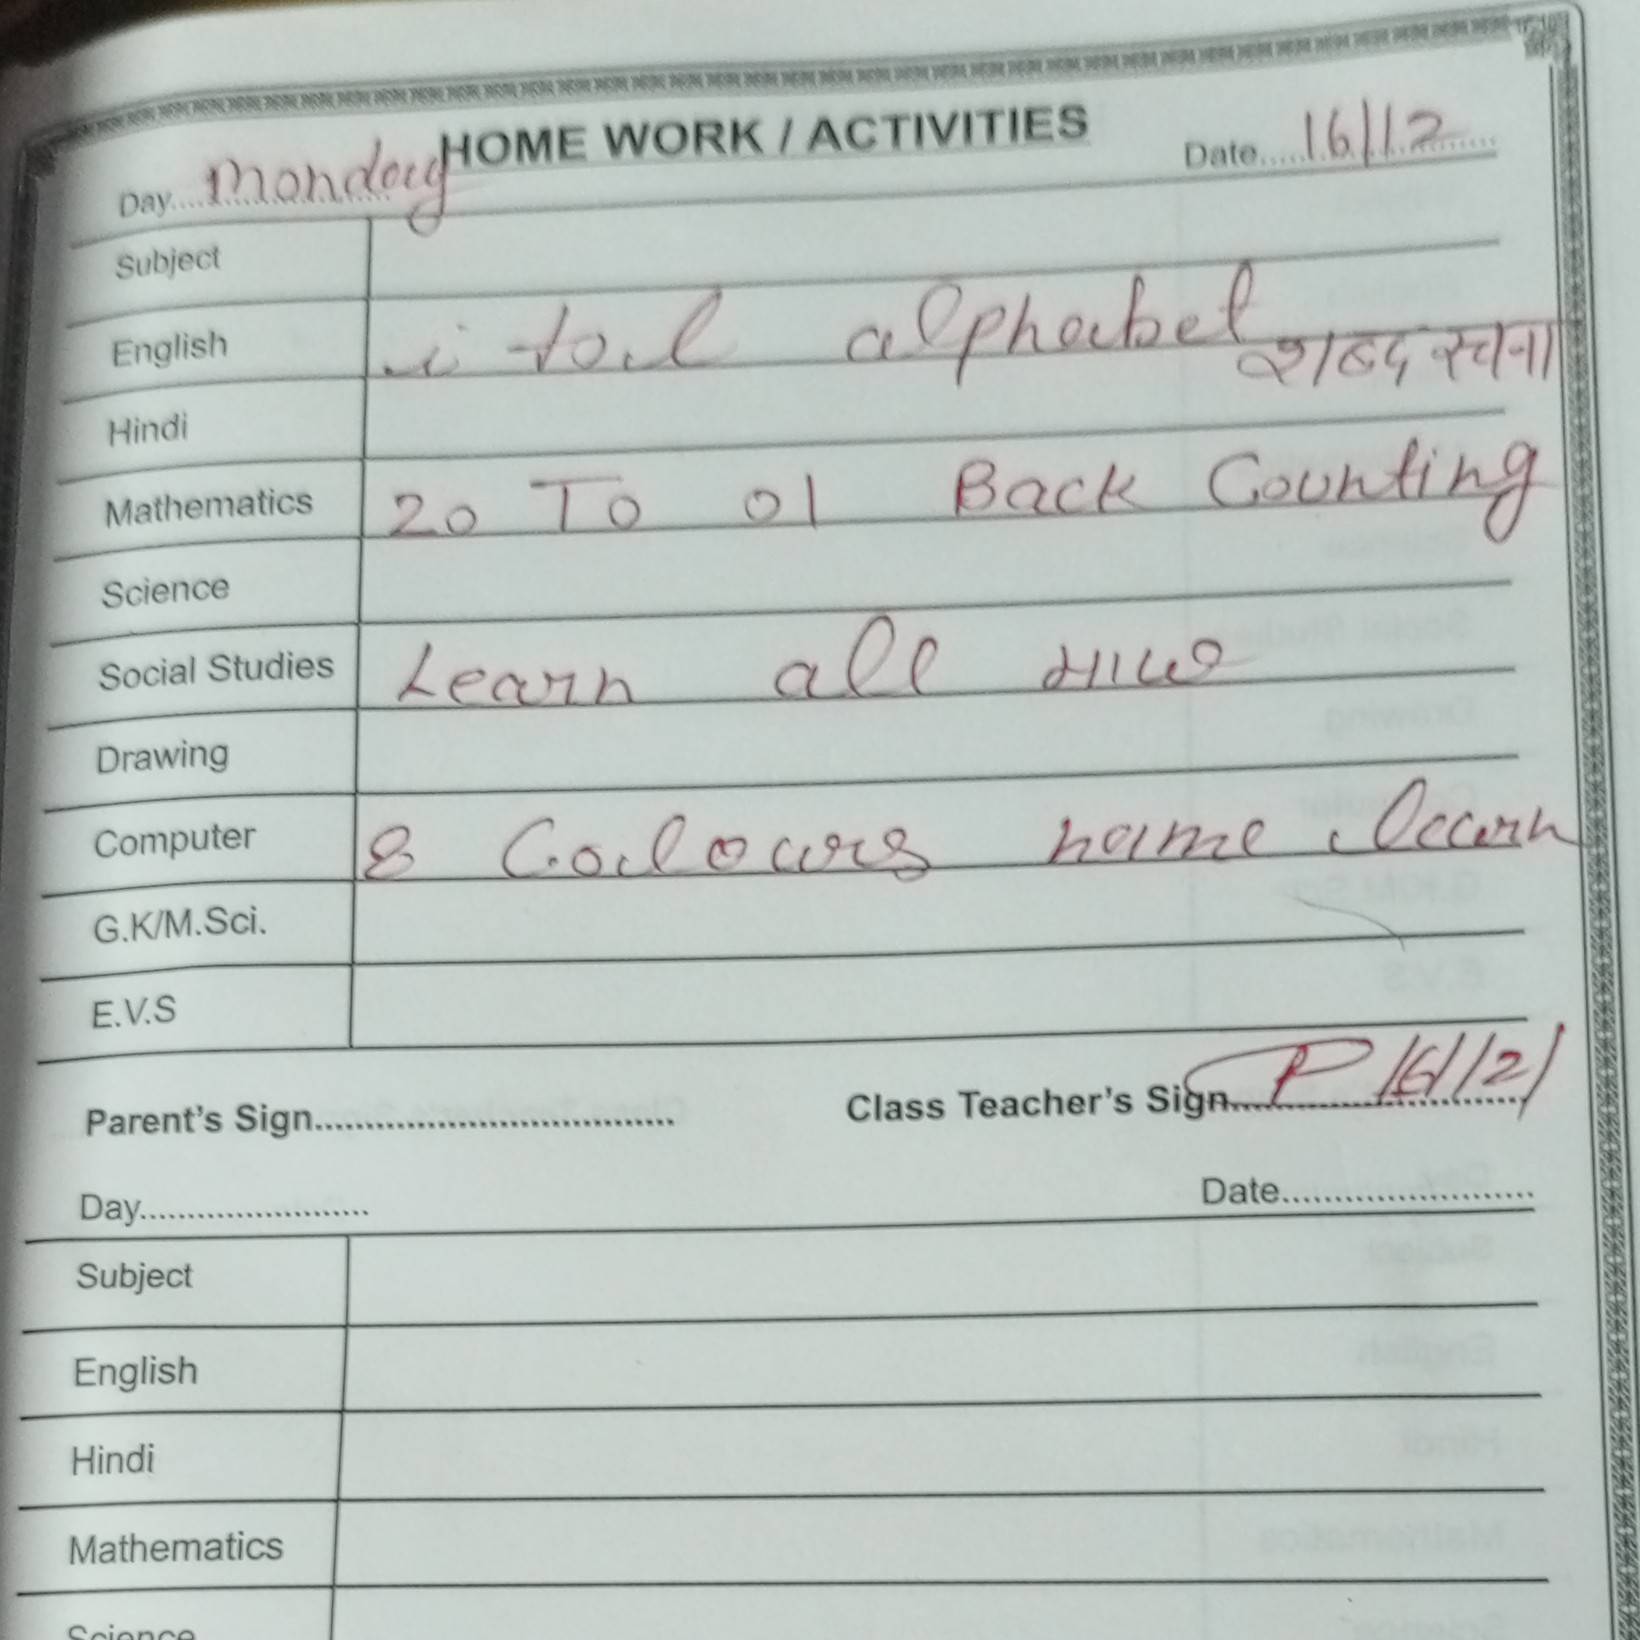 HOME WORK / ACTIVITIES
Day....Monday Date.....16/12
Subject
English i to l alphabet
शब्द रचना
Hindi
Mathematics 20 To 01 Back Counting
Science
Social Studies Learn all
Drawing
Computer 8 Colours name learn
G.K/M.Sci.
E.V.S
Parent's Sign.................................... Class Teacher's Sign........ P 16/12/
Day........................ Date..........................
Subject
English
Hindi
Mathematics
Science